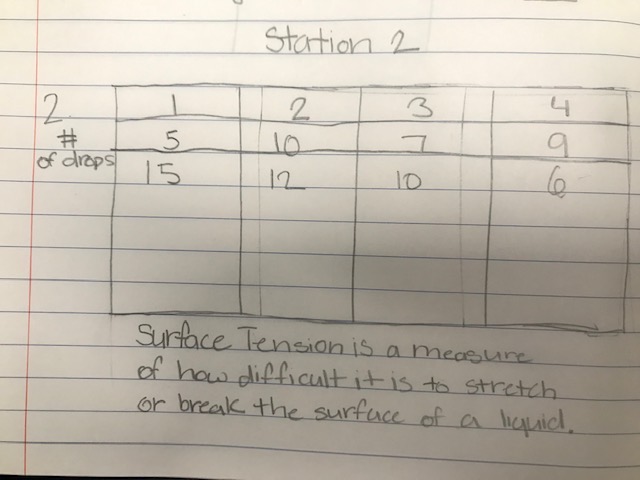 Station 2
2. 1 2 3 4
# 5 10 7 9
of drops 15 12 10 6
Surface Tension is a measure
of how difficult it is to stretch
or break the surface of a liquid.